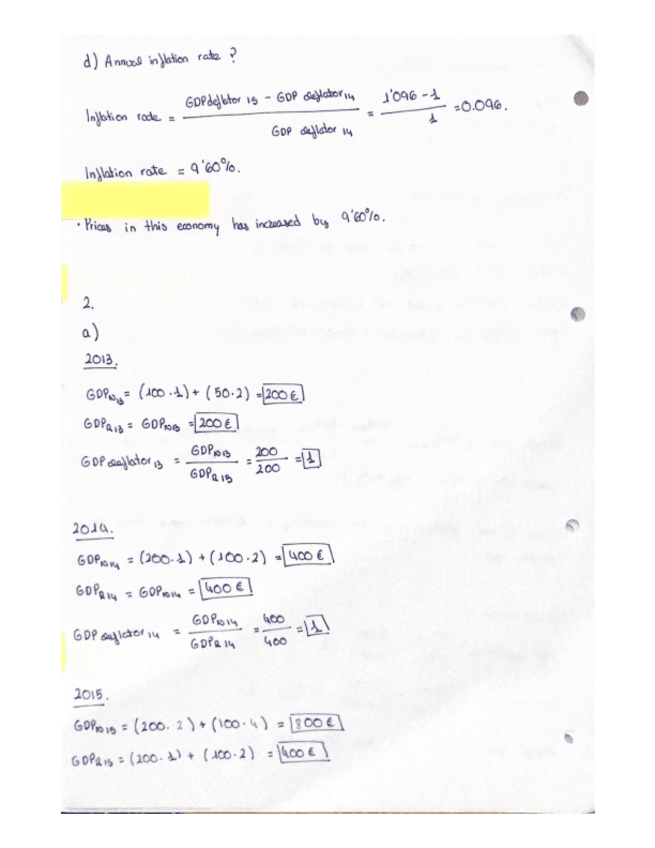 d) Annual inflation rate ?
Inflation rate = GDP deflator 15 - GDP deflator 14 / GDP deflator 14 = 1'096 - 1 / 1 = 0.096.
Inflation rate = 9'60%.
· Prices in this economy has increased by 9'60%.
2.
a)
2013.
GDP_N13 = (100 · 1) + (50 · 2) = 200 €
GDP_R13 = GDP_N13 = 200 €
GDP deflator 13 = GDP_N13 / GDP_R13 = 200 / 200 = 1
2014.
GDP_N14 = (200 · 1) + (100 · 2) = 400 €
GDP_R14 = GDP_N14 = 400 €
GDP deflator 14 = GDP_N14 / GDP_R14 = 400 / 400 = 1
2015.
GDP_N15 = (200 · 2) + (100 · 4) = 800 €
GDP_R15 = (200 · 1) + (100 · 2) = 400 €